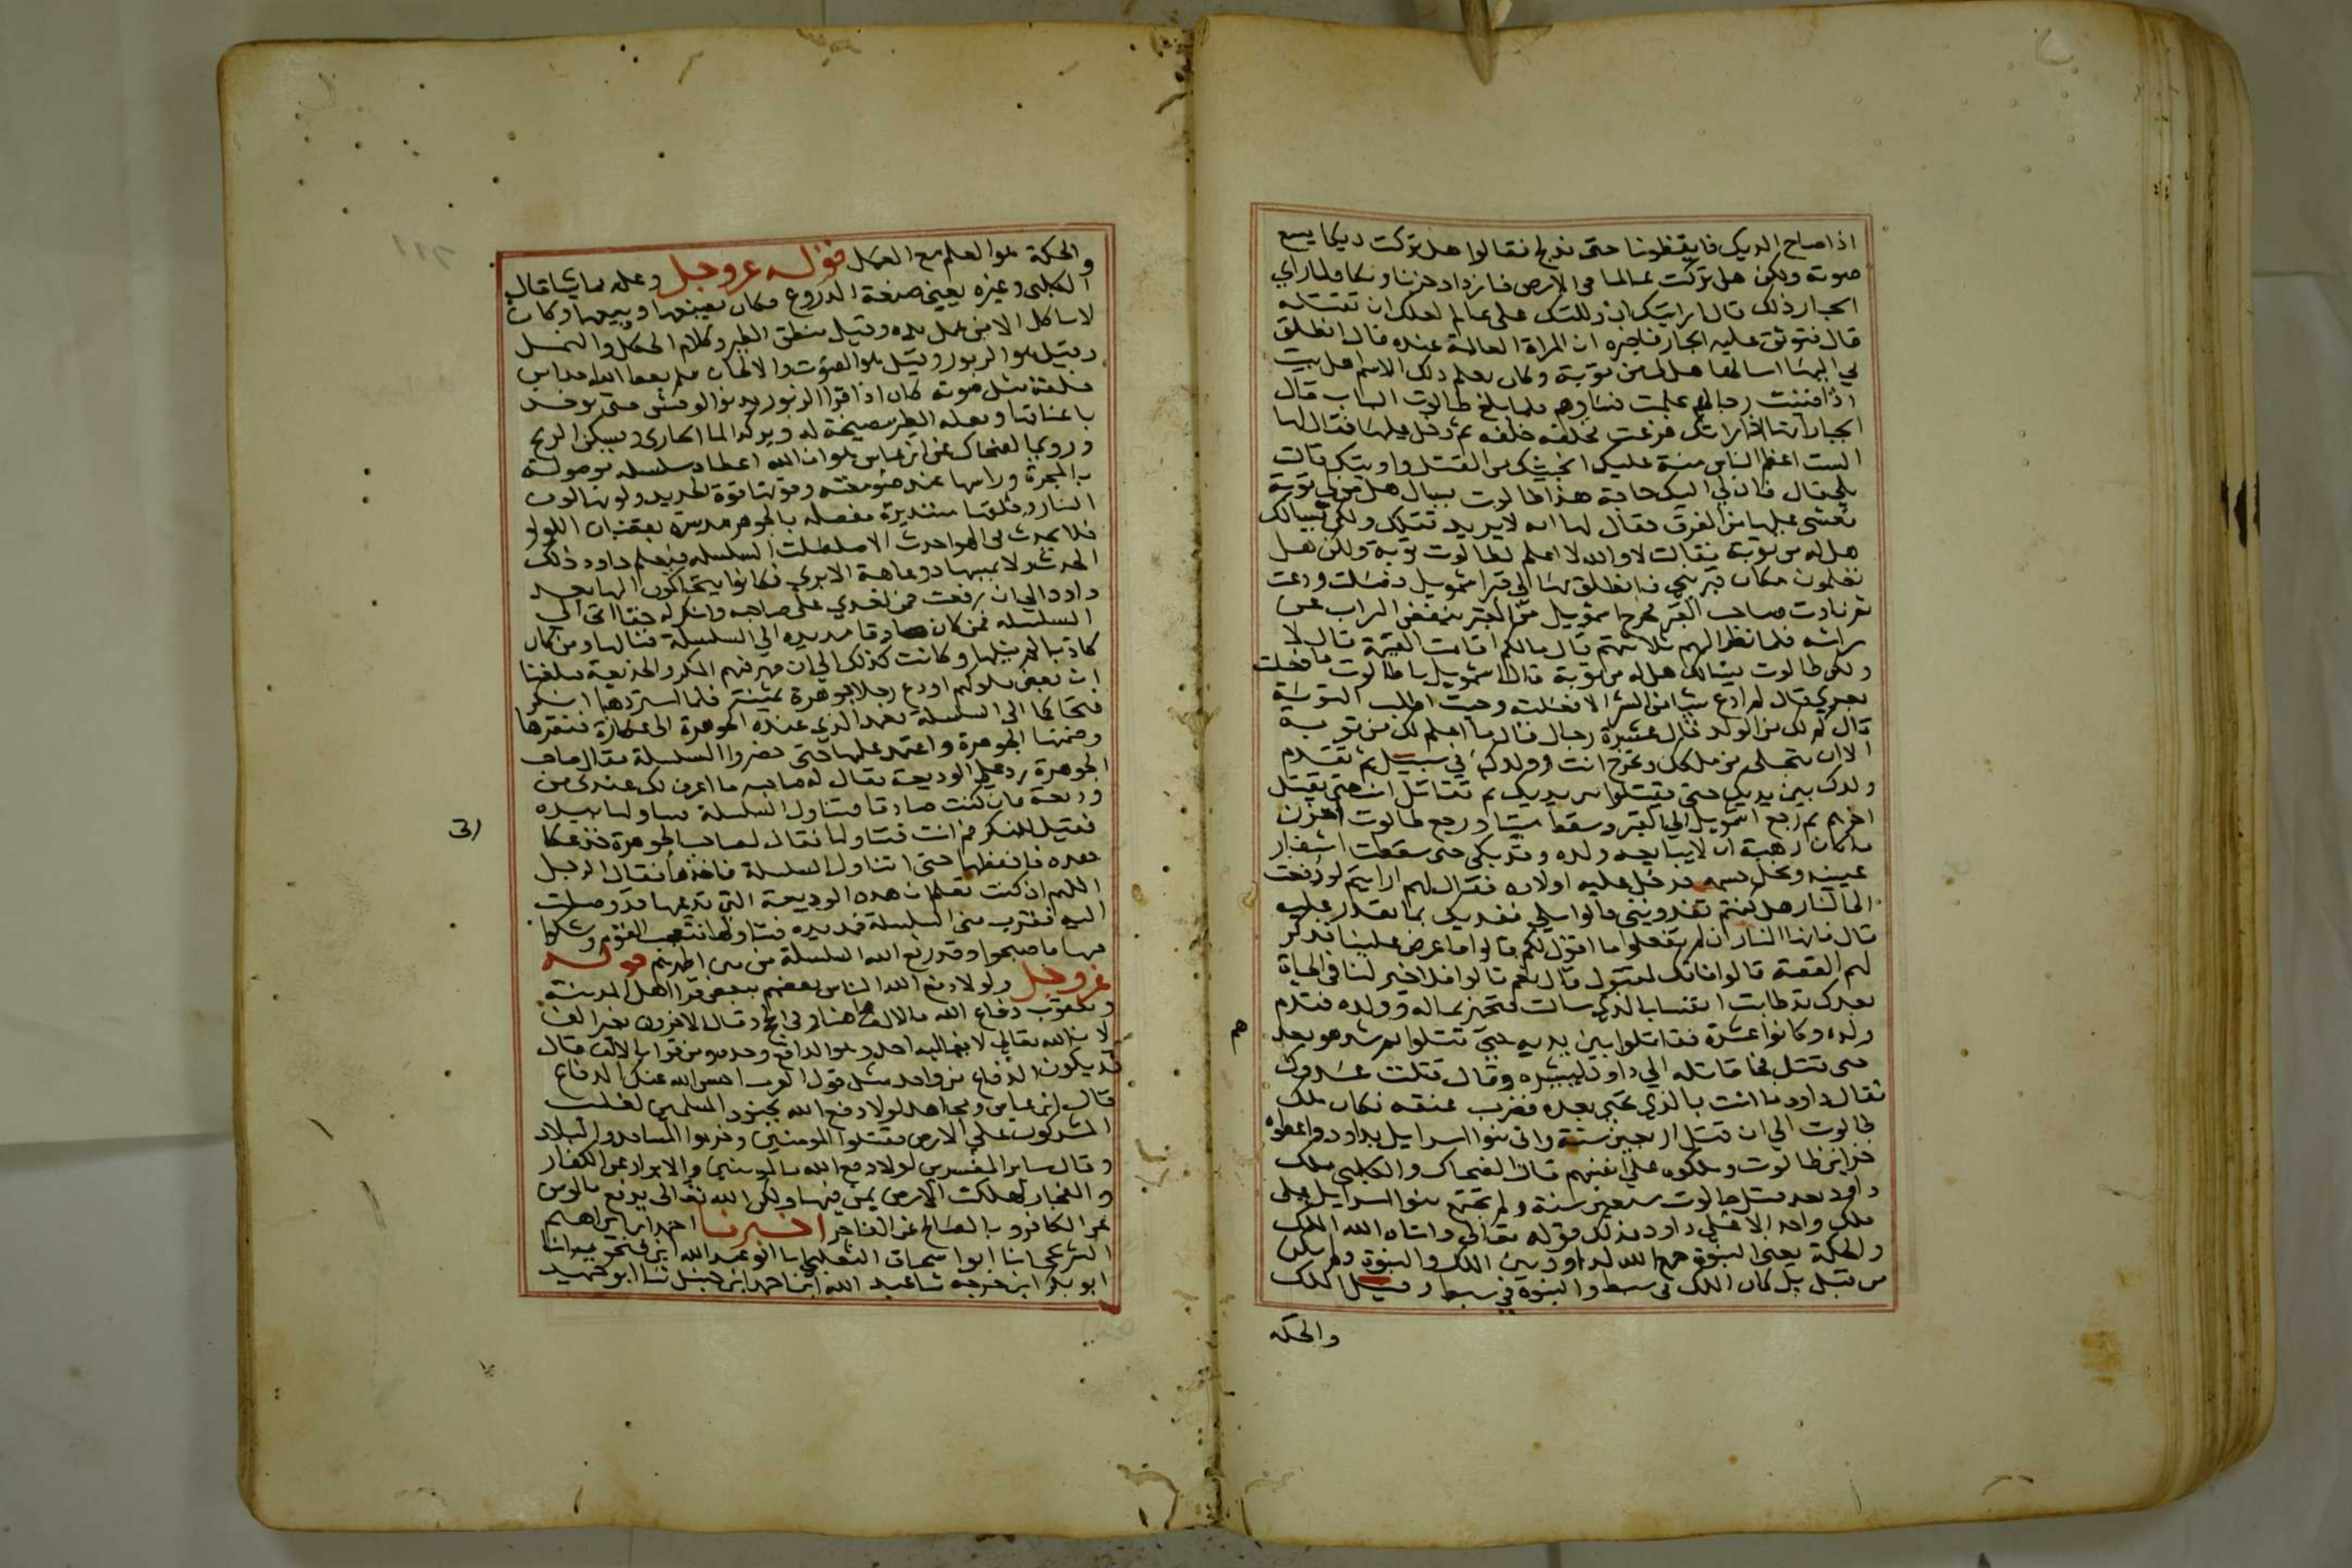 اذا صاح الديك فايقظونا حتى ندلج فقالوا هل تركت ديكا يسمع
صوته ولكن هل تركت عالما في الارض فازداد حزنا وبكا فلما راي
الجبار ذلك قال ارايتك ان دللتك على عالم لعلك ان تقتله
قال فتوثق عليه الجبار فاخبره ان المراة العالمة عنده قال انطلق
بي اليها اسالها هل لي من توبة وكان يعلم ذلك الاسم اهل بيت
اذا فنيت رجالهم علمت نساوهم فلما بلغ طالوت الباب قال
الجبار انها اذا راتك فزعت فخلفه خلفه ثم دخل عليها فقال لها
الست اعظم الناس منة عليك انجيتك من القتل واويتك قالت
بلى قال فان لي اليك حاجة هذا طالوت يسال هل من توبة
فغشي عليها من الفرق فقال لها انه لا يريد قتلك ولكن يسالك
هل له من توبة فقالت لا والله لا اعلم لطالوت توبة ولكن هل
تعلمون مكان قبر نبي فانطلق بها الي قبر اشمويل فصلت ودعت
ثم نادت صاحب القبر فخرج اشمويل من القبر ينفض التراب عن
راسه فلما نظر اليهم ثلاثتهم قال مالكم اقامت القيمة قال لا
ولكن طالوت يسالك هل له من توبة قال اشمويل يا طالوت ما فعلت
بعدي قال لم ادع شيا من الشر الا فعلته وجيت اطلب التوبة
قال كم لك من الولد قال عشرة رجال قال ما اعلم لك من توبة
الا ان تتخلى من ملكك وتخرج انت وولدك في سبيل ثم تقدم
ولدك بين يديك حتى يقتلوا بين يديك ثم تقاتل انت حتى تقتل
اخرهم ثم رجع اشمويل الي القبر وسقط ميتا ورجع طالوت احزن
ما كان رهبة ان لا يتابعه ولده وقد بكى حتى سقطت اشفار
عينيه ونحل جسمه فدخل عليه اولاده فقال لهم ارايتم لو دفعت
الي النار هل كنتم تفدونني قالوا بلى نفديك بما نقدر عليه
قال فانها النار ان لم تفعلوا ما اقول لكم قالوا فاعرض علينا فذكر
لهم القصة قالوا فانك لمقتول قال نعم قالوا فلا خير لنا في الحياة
بعدك قد طابت انفسنا بالذي سالت فتجهز بماله وولده فتقدم
ولده وكانوا عشرة فقاتلوا بين يديه حتى قتلوا ثم شد هو بعدهم
حتى قتل فجا قاتله الي داود ليبشره وقال قتلت عدوك
فقال داود ما انت بالذي تحيى بعده فضرب عنقه فكان ملك
طالوت الي ان قتل اربعين سنة واتى بنوا اسرايل بداود واعطوه
خزاين طالوت وملكوه على انفسهم قال الضحاك والكلبي ملك
داود بعد قتل جالوت سبعين سنة ولم تجتمع بنوا اسرايل على
ملك واحد الا على داود فذلك قوله تعالى واتاه الله الملك
والحكمة يعني النبوة جمع الله لداود بين الملك والنبوة ولم يكن
من قبل بل كان الملك في سبط والنبوة في سبط وقيل الملك
والحكمة
والحكمة هو العلم مع العمل قوله عز وجل وعلمه مما يشا قال
الكلبي وغيره يعني صنعة الدروع فكان يصنعها ويبيعها وكان
لا ياكل الا من عمل يده وقيل منطق الطير وكلام الحكل والنمل
وقيل هو الزبور وقيل هو الصوت والالحان فلم يعط الله احدا من
خلقه مثل صوته كان اذا قرا الزبور يدنوا الوحش حتى يوخذ
باعناقها وتظله الطير مصيخة له ويركد الما الجاري ويسكن الريح
وروي الضحاك عن ابن عباس هو ان الله اعطاه سلسلة موصولة
بالمجرة وراسها عند صومعته وقوتها قوة الحديد ولونها لون
النار وحلقها مستديرة مفصلة بالجوهر مدسرة بقضبان اللولو
فلا يحدث في الهوا حدث الا صلصلت السلسلة فيعلم داود ذلك
الحدث ولا يمسها ذو عاهة الا بري فكانوا يتحاكمون اليها بعد
داود الي ان رفعت فمن تعدي على صاحبه وانكر له حقا اتى الي
السلسلة فمن كان صادقا مد يده الي السلسلة فنالها ومن كان
كاذبا لم ينلها وكانت كذلك الي ان ظهر فيهم المكر والخديعة فبلغنا
ان بعض ملوكهم اودع رجلا جوهرة ثمينة فلما استردها انكر
فتحاكما الى السلسلة فعمد الذي عنده الجوهرة الى عكازة فنقرها
وضمنها الجوهرة واعتمد عليها حتى حضروا السلسلة فقال صاحب
الجوهرة رد علي الوديعة فقال له صاحبه ما اعرف لك عندي من
وديعة فان كنت صادقا فتناول السلسلة فتناولها بيده
فقيل للمنكر قم انت فتناولها فقال لصاحب الجوهرة خذ عكازي
هذه فاحفظها حتى اتناول السلسلة فاخذها فقال الرجل
اللهم ان كنت تعلم ان هذه الوديعة التي يدعيها قد وصلت
اليه فقرب مني السلسلة فمد يده فتناولها فتعجب القوم وشكوا
فيها فاصبحوا وقد رفع الله السلسلة من بين اظهرهم قوله
عز وجل ولولا دفع الله الناس بعضهم ببعض قرا اهل المدينة
ويعقوب دفاع الله بالالف هاهنا وفي الحج وقال الاخرون بغير الف
لان الله تعالى لا يغالبه احد وهو الدافع وحده ومن قرا بالالف قال
قد يكون الدفاع من واحد مثل قول العرب احسن الله عنك الدفاع
قال ابن عباس ومجاهد لولا دفع الله بجنود المسلمين لغلب
المشركون على الارض فقتلوا المومنين وخربوا المساجد والبلاد
وقال ساير المفسرين لولا دفع الله بالمومنين والابرار عن الكفار
والفجار لهلكت الارض بمن فيها ولكن الله تعالى يدفع بالمومن
عن الكافر وبالصالح عن الفاجر اخبرنا احمد ابن ابراهيم
الشريحي انا ابوا اسحاق الثعلبي انا ابو عبد الله ابن فنجويه انا
ابو بكر ابن خرجه ثنا عبد الله ابن احمد ابن حنبل ثنا ابو حميد